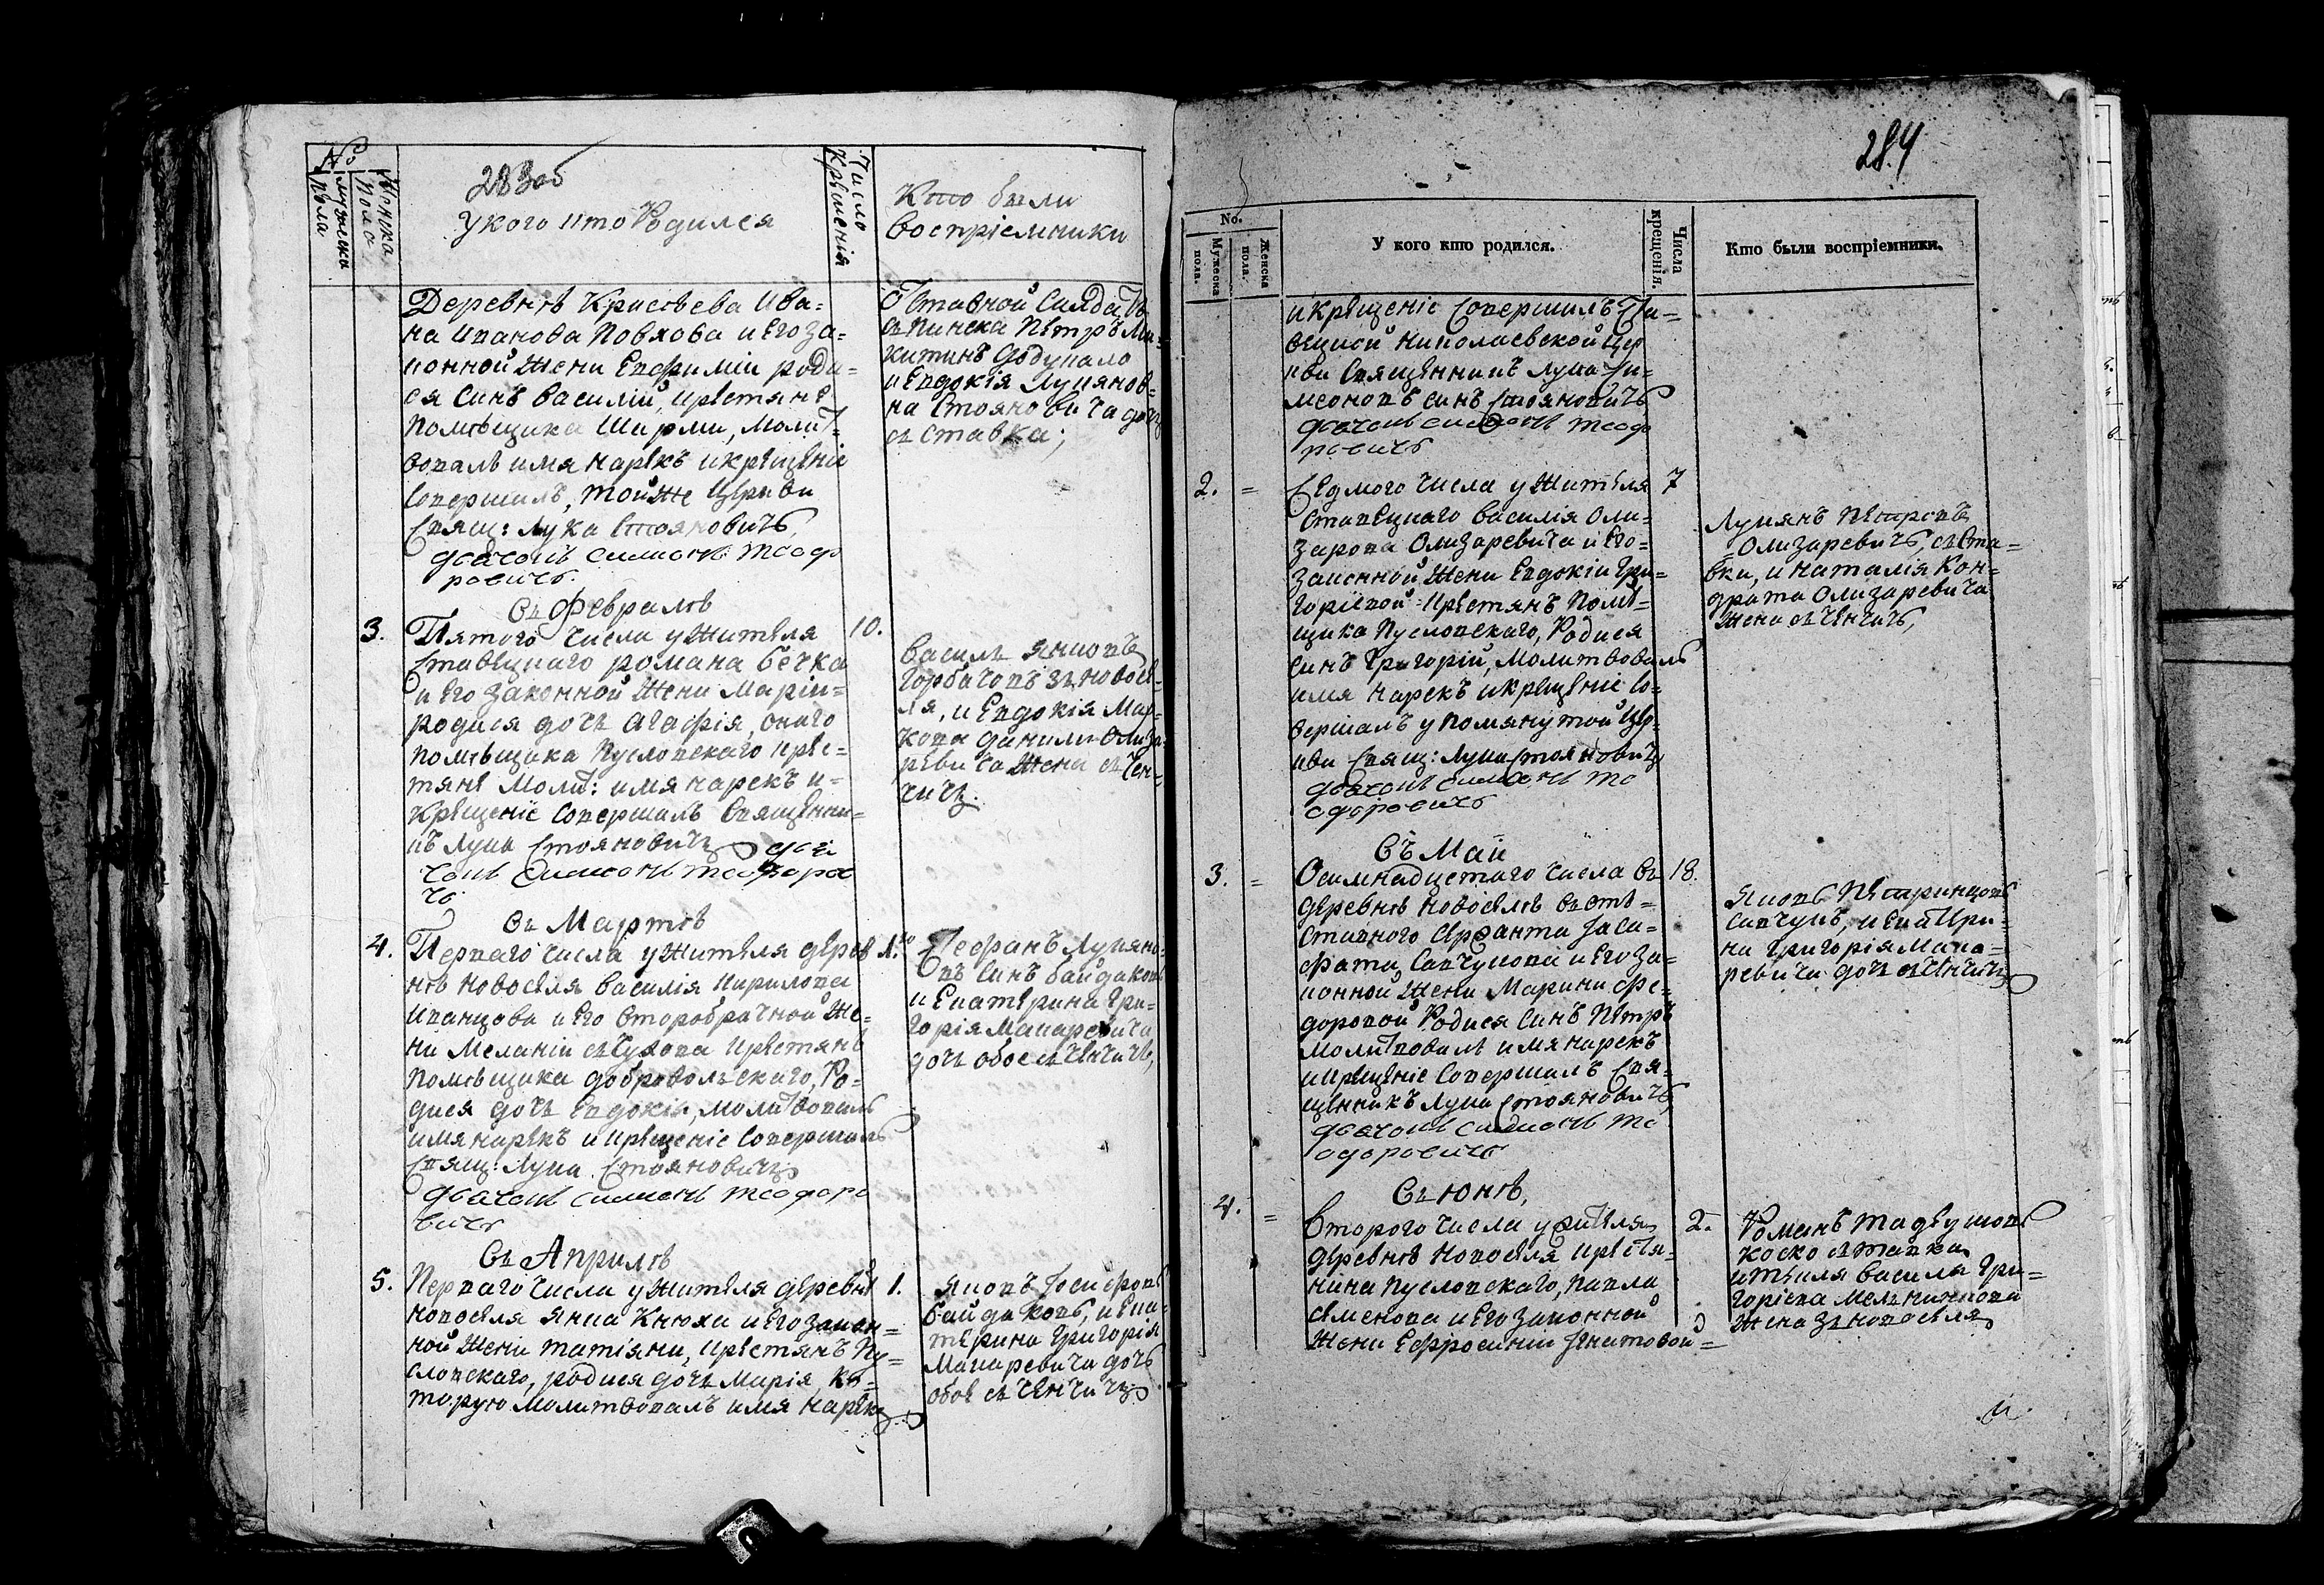 №
Мужеска пола
Женска пола
283об
У кого кто Родился
Число Крещенія
Кто были
воспріемники
Деревнѣ Крисѣева Ива=
на Иванова Повхова и Его за=
конной Жени Евфиміи роди=
ся Синъ Василій, крестяне
Помѣщика Ширми, Молит=
вовалъ имя нарекъ и крещеніе
Совершилъ, той же Церкви
Свящ: Лука Стояновичъ
дьячокъ Симеонъ Теодо
ровичъ
Отставной Салдатъ
съ Пинска Петръ Ми=
китинъ
и Евдокія Лукянов=
на Стояновича дочъ
съ Ставка;
Въ Февралѣ
3.
Пятого числа у Жителя
10.
Ставецкаго романа Бечка
и Его Законной Жени Маріи=
родися дочъ Агафія, оного
помѣщика Пусловскаго крес=
тяне Молит: имя нарекъ и=
Крещеніе Совершилъ Священни=
къ Лука Стояновичъ дья
чокъ Симеонъ Теодорови
чъ
Василь Янковъ
Горбачовъ зъ Новосе=
ля, и Евдокія Мар=
кова Данили Олиза=
ревича Жена съ Чен=
чичъ.
Въ Мартѣ
4.
Перваго числа у Жителя дерев
1.го
нѣ Новоселя Василія Кирилова
Иванцова и Его Второбрачной Же=
ни Меланіи съ Чухова крестянъ
Помѣщика Добровольскаго, Ро=
дися дочъ Евдокія, молитвовалъ
имя нарекъ и крещеніе Совершилъ
Свящ: Лука Стояновичъ
дьячокъ Симеонъ Теодоро
вичъ
Стефанъ Лукяно=
въ Синъ Байдаковъ
и Екатерина Гри=
горія Макаревича
дочъ обое съ Ченчичъ,
Въ Априлѣ
5.
Перваго числа у Жителя деревнѣ
1.
Новоселя Янка Кнюха и Его закон=
ной Жени Татіяни, крестянъ Пу=
словскаго, родися дочъ Марія, ко=
торую Молитвовалъ имя нарекъ
Яковъ Іосифовъ
Байдаковъ, и Ека=
терина Григорія
Макаревича дочъ
обое съ Ченчичъ
284
No.
Мужеска пола.
Женска пола.
У кого кто родился.
Числа крещенія.
Кто были воспріемники.
и крещеніе Совершилъ Ста=
вецкой Николаевской Цер
кви Священникъ Лука Си=
меоновъ синъ Стояновичъ
дьячокъ Симеонъ Теодо
ровичъ
2. =
Седмого числа у Жителя
7
Ставецкаго Василія Оли=
зарова Олизаревича и Его=
законной Жени Евдокіи Гри=
горіевой= крестянъ Помѣ=
щика Пусловскаго, Родися
Синъ Григорій, Молитвовалъ
имя нарекъ и крещеніе Со=
вершалъ у помянутой Цер=
кви Свящ: Лука Стояновичъ
дьячокъ Симеонъ Те
одоровичъ
Лукянъ Петровъ
Олизаревичъ, съ Ста=
вки, и Наталія Кон=
драта Олизаревича
Жена съ Ченчичъ,
Въ Маи
3. =
Осимнадцетаго числа въ
18.
деревнѣ Новоселѣ въ Отъ=
ставного Сяржанта Іаса=
фата Савчукова и Его За=
конной Жени Марини Фе=
доровой Родися Синъ Петръ
молитвовалъ имя нарекъ
и крещеніе Совершилъ Свя=
щенникъ Лука Стояновичъ,
дьячокъ Симеонъ Те
одоровичъ
Яковъ Петринцовъ
Савчукъ, и Екатери=
на Григорія Мака=
ревича дочъ съ Ченчичъ
Въ Юнѣ,
4. =
Второго числа у жителя
2.
деревнѣ Новоселя крестя=
нина Пусловскаго, Павла
Семенова и Его Законной
Жени Ефросиніи Игнатовой=
Романъ Тадеушовъ
Коско съ Тавки
и жителя Василя Гри=
горіева Мельникова
Жена зъ Новоселя
и